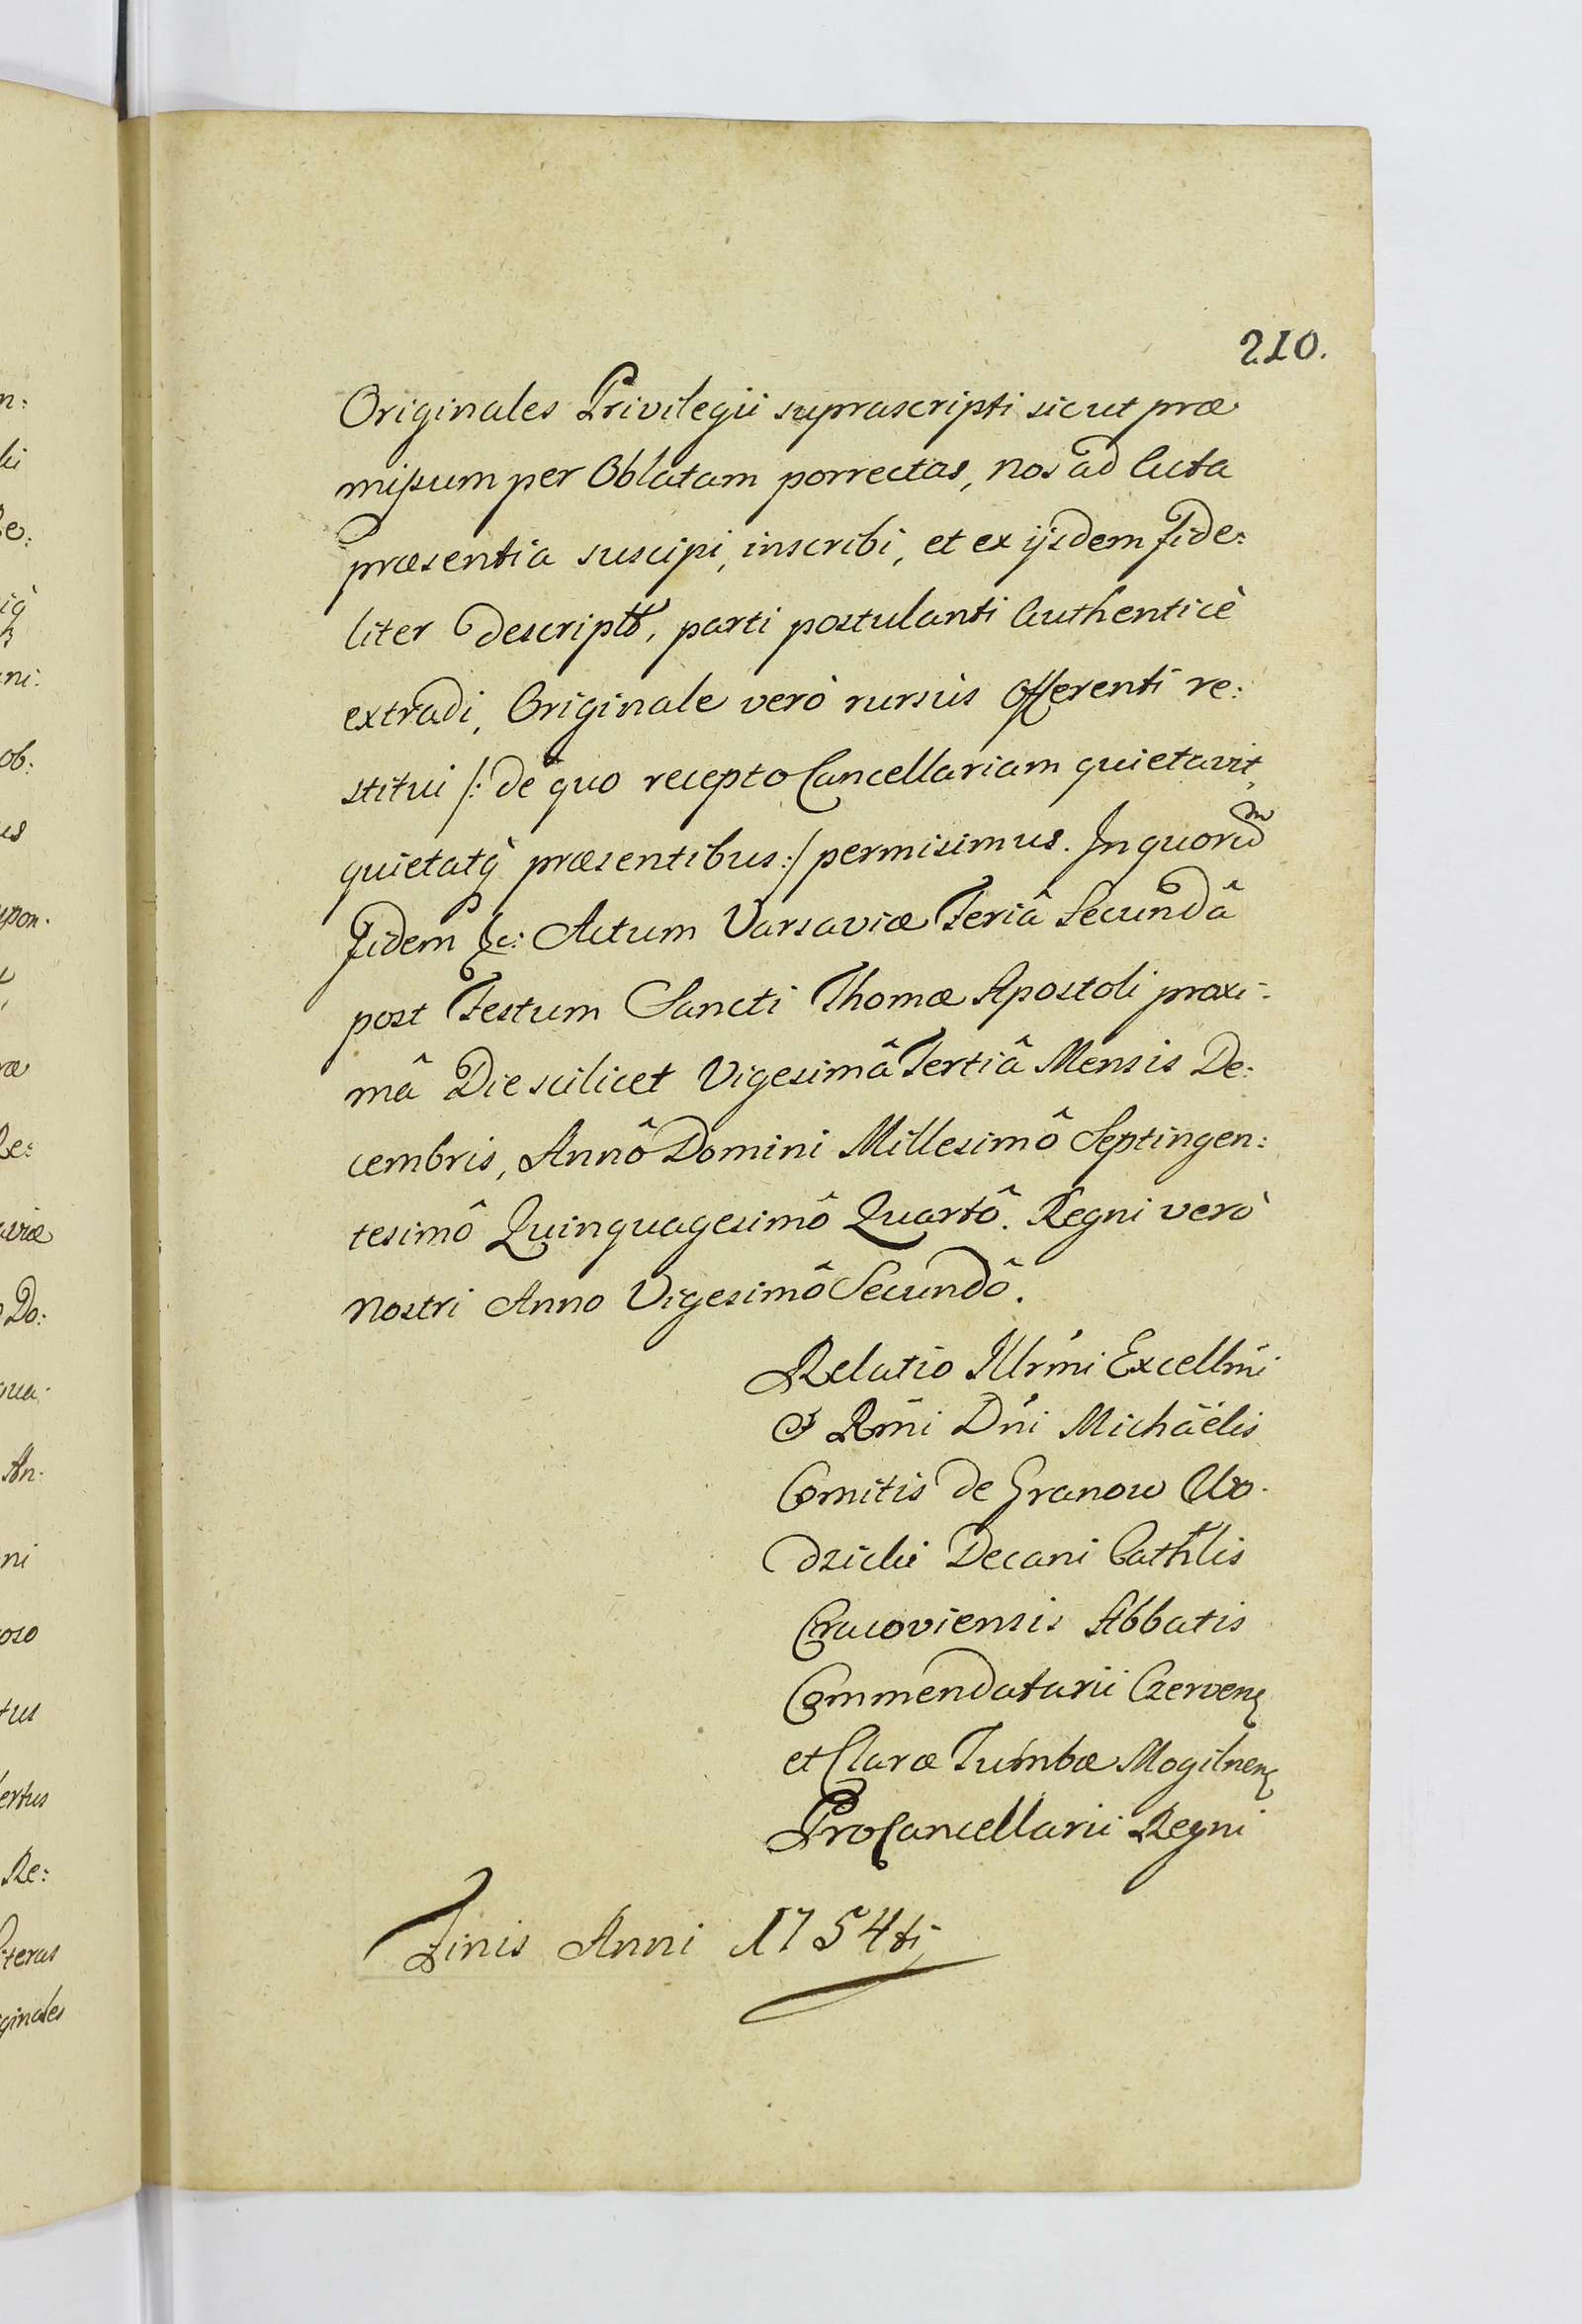 210.
Originales Privilegii suprascripti sicut præ
missum per Oblatam porrectas, nos ad Acta
præsentia suscipi, inscribi, et ex ijsdem Fide:
liter descriptũ, parti postulanti Authenticè
extradi, Originale verò rursùs Offerenti re:
stitui /: de quo recepto Cancellariam quietavit,
quietatq præsentibus :/ permisimus. In quorũ
Fidem &c: Actum Varsaviæ Feriâ Secundâ
post Festum Sancti Thomæ Apostoli proxi-
mâ Die scilicet Vigesimâ Tertiâ Mensis De:
cembris, Annô Domini Millesimô Septingen:
tesimô Quinquagesimô Quartô. Regni verò
nostri Anno Vigesimô Secundô.
Relatio Illrmi Excellmi
& Rmi Dni Michaëlis
Comitis de Granow Wo-
dzicki Decani Cathlis
Cracoviensis Abbatis
Commendatarii Czerven
et Claræ Tumbæ Mogilnen
ProCancellarii Regni
Finis Anni 1754ti
n:
ki
Re:
ni:
ob:
us
upon.
ræ
Re:
aviæ
Do:
qua-
An-
ni
oso
tus
ertus
Re:
Literas
ginales